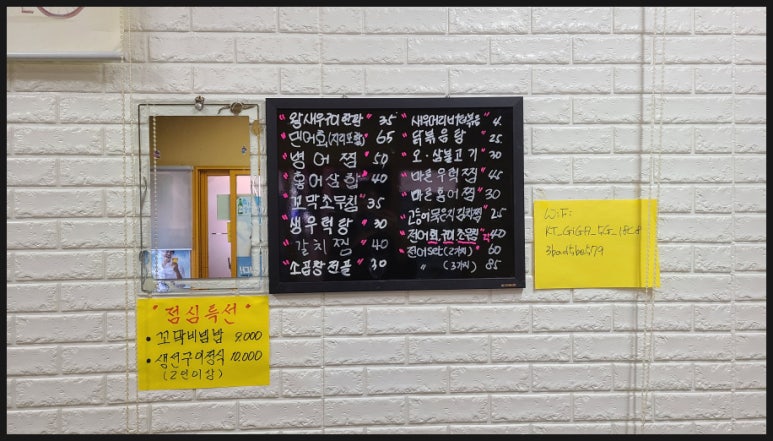 "왕새우구이 한판" 35
"민어회(지리포함)" 65
"병어찜" 50
"홍어삼합" 40
"꼬막소무침" 35
"생우럭탕" 30
"갈치찜" 40
"소곱창전골" 30
"새우머리버터볶음" 4.
"닭볶음탕" 25
"오·삼불고기" 30
"마른우럭찜" 45
"마른홍어찜" 30
"고등어묵은지김치찜" 25
"전어회,구이,소무침" 각40
"전어set(2가지) 60
" (3가지) 85
"점심특선"
• 꼬막비빔밥 9.000
• 생선구이정식 10,000
(2인이상)
WiFi:
KT_GiGA_5G_18C8